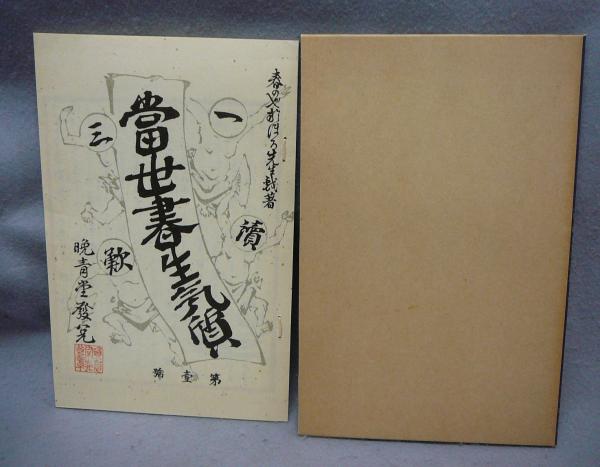 春のやおぼろ先生戯著
一
讀
三
歎
當世書生気質
晩青堂發兌
第壹號